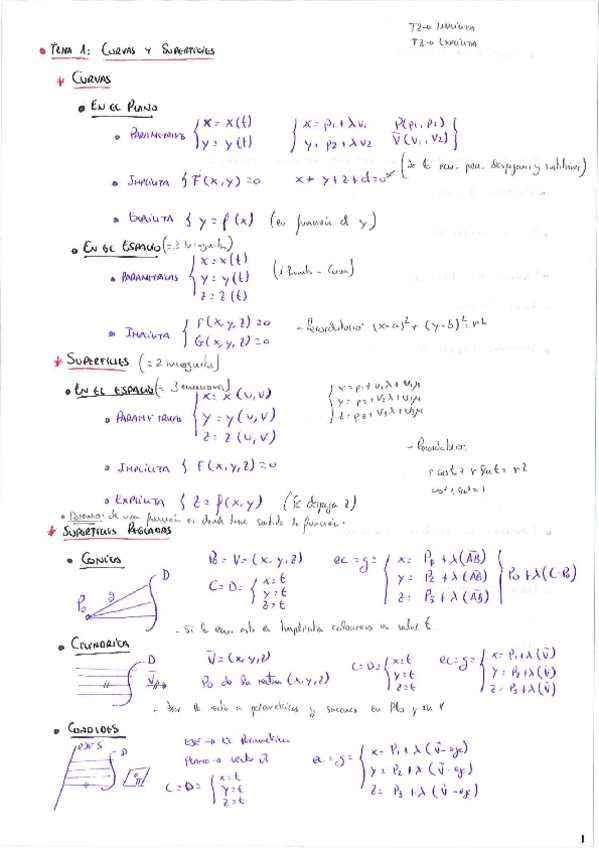 T2 → IMPLÍCITA
T3 → EXPLÍCITA
• TEMA 1: CURVAS Y SUPERFICIES
* CURVAS
• EN EL PLANO
• PARAMÉTRICAS { x = x(t) y = y(t) { x = p1 + λ v1 y = p2 + λ v2 P(p1, p2) V(v1, v2) }
• IMPLÍCITA { F(x,y) = 0 x + y + z + d = 0 (de la ecu. para. despejamos y sustituimos)
• EXPLÍCITA { y = f(x) (en función d y)
• EN EL ESPACIO (= 3 incognitas)
• PARAMÉTRICAS { x = x(t) y = y(t) z = z(t) (1 Parámetro - Curva)
• IMPLÍCITA { F(x,y,z) = 0 G(x,y,z) = 0 - Recordatorio: (x-a)² + (y-b)² = r²
* SUPERFICIES (= 2 incognitas)
• EN EL ESPACIO (= 3 ecuaciones)
• PARAMÉTRICAS { x = x(u,v) y = y(u,v) z = z(u,v) { x = p1 + v1λ + u1μ y = p2 + v2λ + u2μ z = p3 + v3λ + u3μ
- Recordatorio:
• IMPLÍCITA { F(x,y,z) = 0 r cost + r sent = r2
cos² + sen² = 1
• EXPLÍCITA { z = f(x,y) (se despeja z)
• Dominio: de una función es donde tiene sentido la función.
* SUPERFICIES REGLADAS
• CONICA P0 = V = (x,y,z) ec = g = { x = P1 + λ(AB) y = P2 + λ(AB) z = P3 + λ(AB) { P0 + λ(C-P0)
P0 g D C = D = { x = t y = t z = t
- Si la ecu. esta en implicita colocamos un valor t
• CILINDRICA V = (x,y,z) C = D = { x = t y = t z = t ec = g = { x = P1 + λ(v) y = P2 + λ(v) z = P3 + λ(v)
D V P0 de la recta (x,y,z)
la recta a parametricas y sacamos su Pto y su V
• CONOIDES
EJE S D π EJE → EC Parametrica
PLANO → vector
C = D = { x = t y = t z = t ec = g = { x = P1 + λ(v - eje) y = P2 + λ(v - eje) z = P3 + λ(v - eje)
1